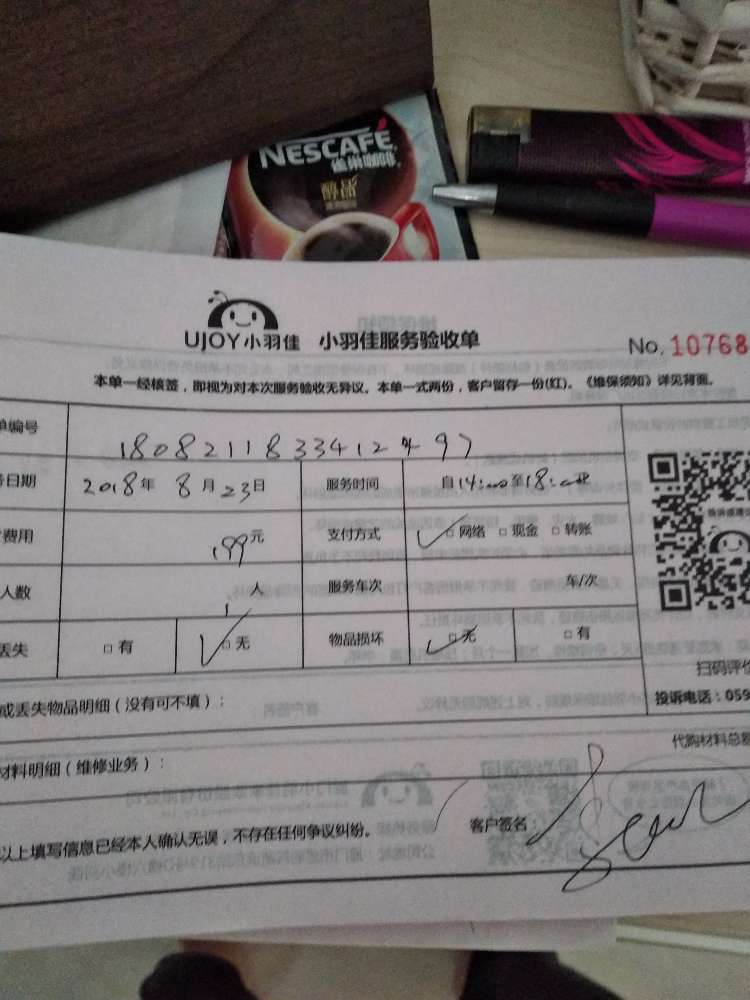 NESCAFÉ
雀巢咖啡
醇品
UJOY小羽佳 小羽佳服务验收单
No. 10768
本单一经核签，即视为对本次服务验收无异议。本单一式两份，客户留存一份(红)。《维保须知》详见背面。
单编号
日期 2018年 8月23日 服务时间 自14:00至18:00
费用 199元 支付方式 □网络 □现金 □转账
人数 1人 服务车次 车/次
丢失 □有 □无 物品损坏 □无 □有
扫码评价
或丢失物品明细（没有可不填）：
投诉电话：059
代购材料总额
材料明细（维修业务）：
以上填写信息已经本人确认无误，不存在任何争议纠纷。
客户签名：